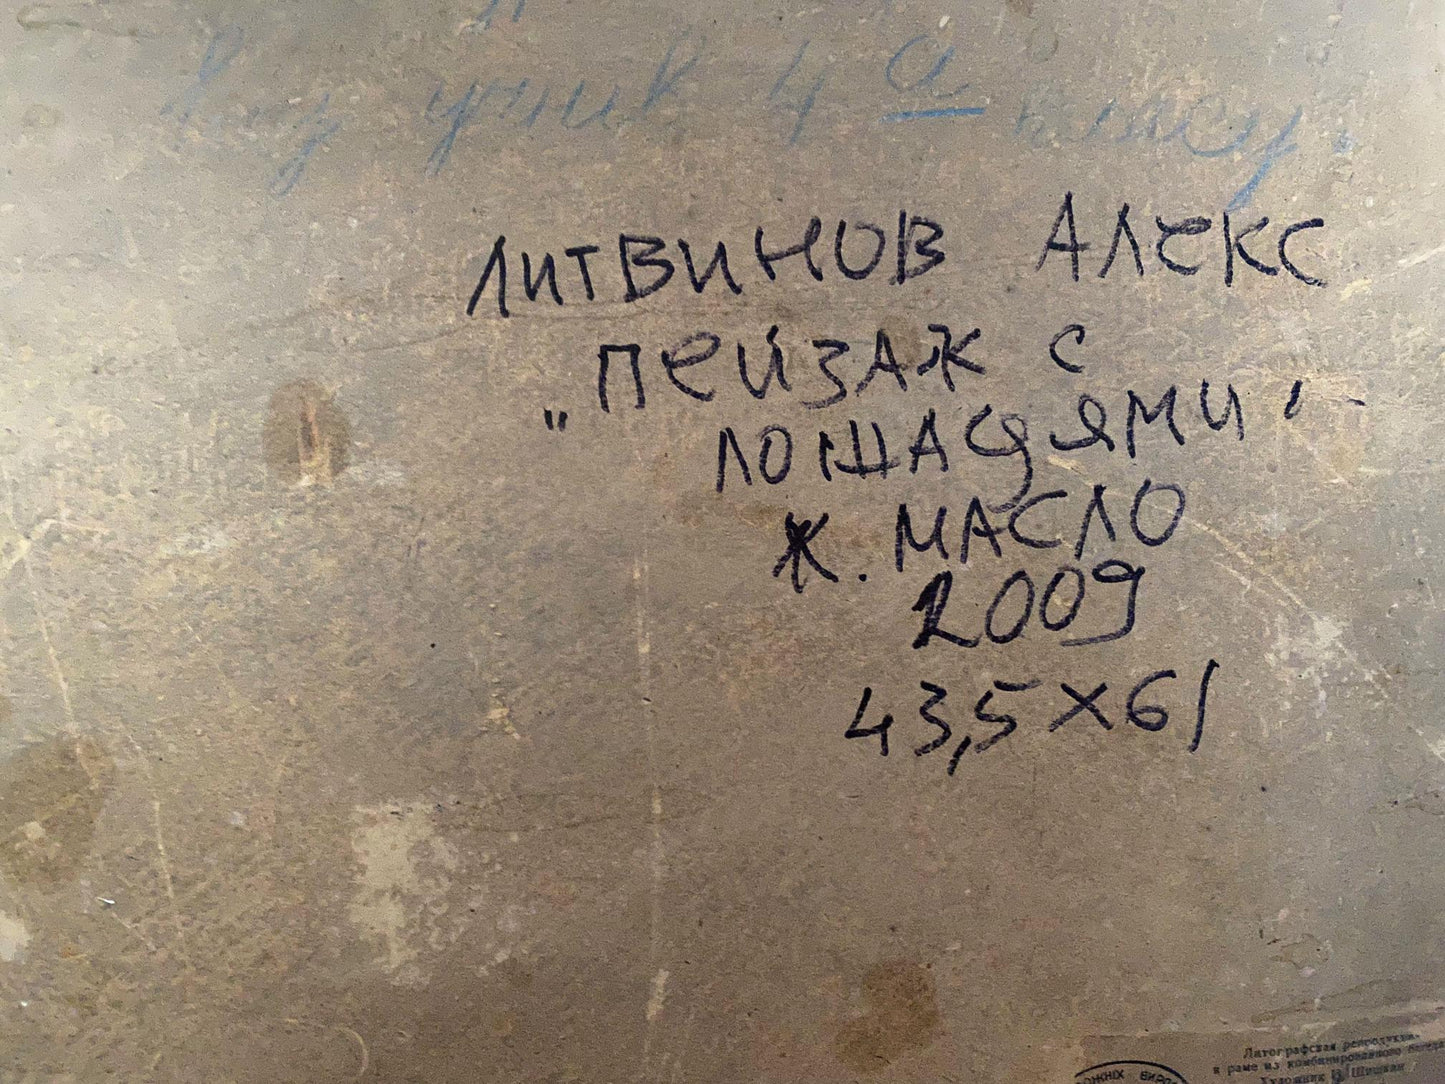 учнів 4 а класу.
ЛИТВИНОВ АЛЕКС
"ПЕЙЗАЖ С
ЛОШАДЯМИ"
Ж. МАСЛО
2009
43,5 X 61
Литографская репродукци-
в раме из комбинированного
Художник Шишкин
ОЖНІХ ВИРО